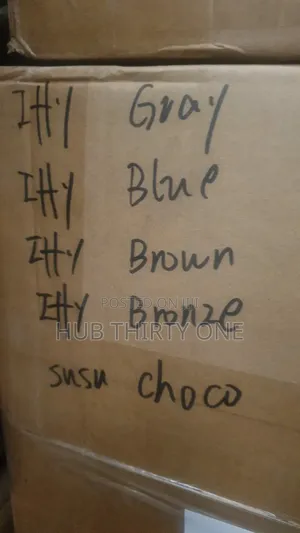 IHY Gray
IHY Blue
IHY Brown
IHY Bronze
HUB THIRTY ONE
susu choco